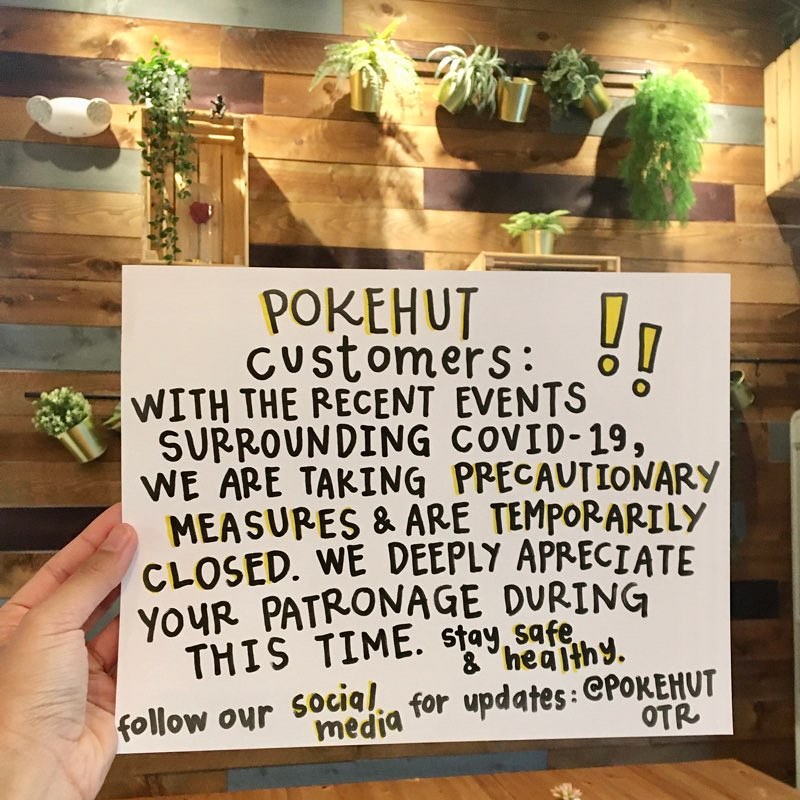 POKEHUT !!
customers:
WITH THE RECENT EVENTS
SURROUNDING COVID-19,
WE ARE TAKING PRECAUTIONARY
MEASURES & ARE TEMPORARILY
CLOSED. WE DEEPLY APRECIATE
YOUR PATRONAGE DURING
THIS TIME. stay safe
& healthy.
follow our social media for updates: @POKEHUT
OTR